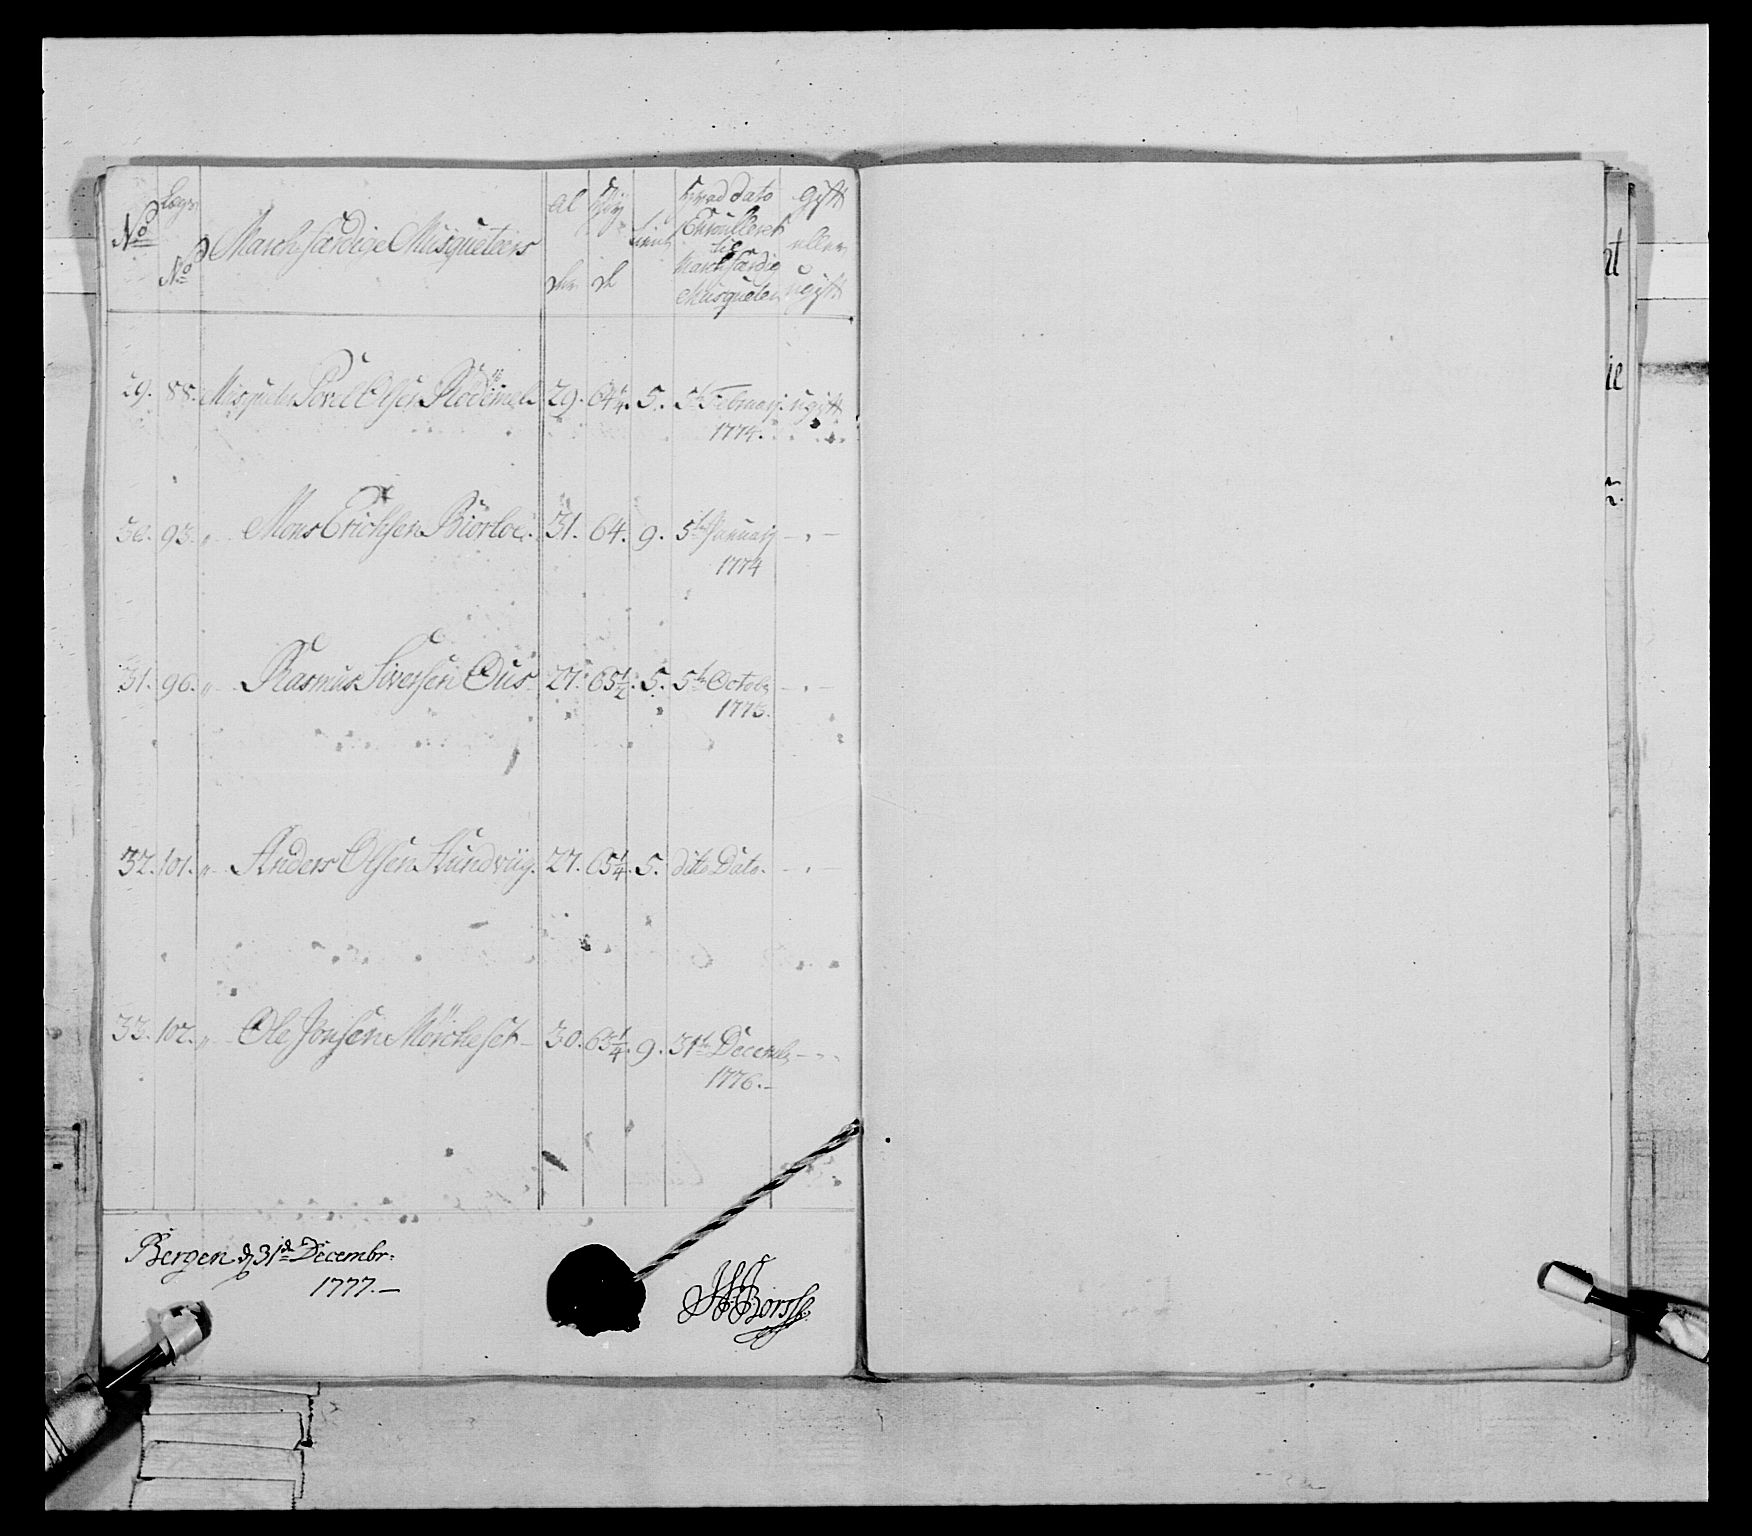 No Lægs No Marchfærdige Musqueteers Al der Høy de tienst hvad dato Enroulleret til Marchfærdig Musqueteer Gift eller ugift
29. 88. Musqueteer Povel Olsen Flödemel 29. 64 1/4. 5. 5te Februarij ugift
1774.
30. 93. " Mons Erichsen Biorloe. 31. 64. 9. 5te Januarij - " -
1774
31. 96. " Rasmus Siversen Ous 27. 65 1/2. 5. 5te Octobr - " -
1773.
32. 101. " Anders Olsen Hundviig. 27. 65 1/4. 5. dito Dato. - " -
33. 102. " Ole Jonsen Mörcheset 30. 65 1/4. 9. 31te Decembr - " -
1776.
Bergen d 31de Decembr:
1777.